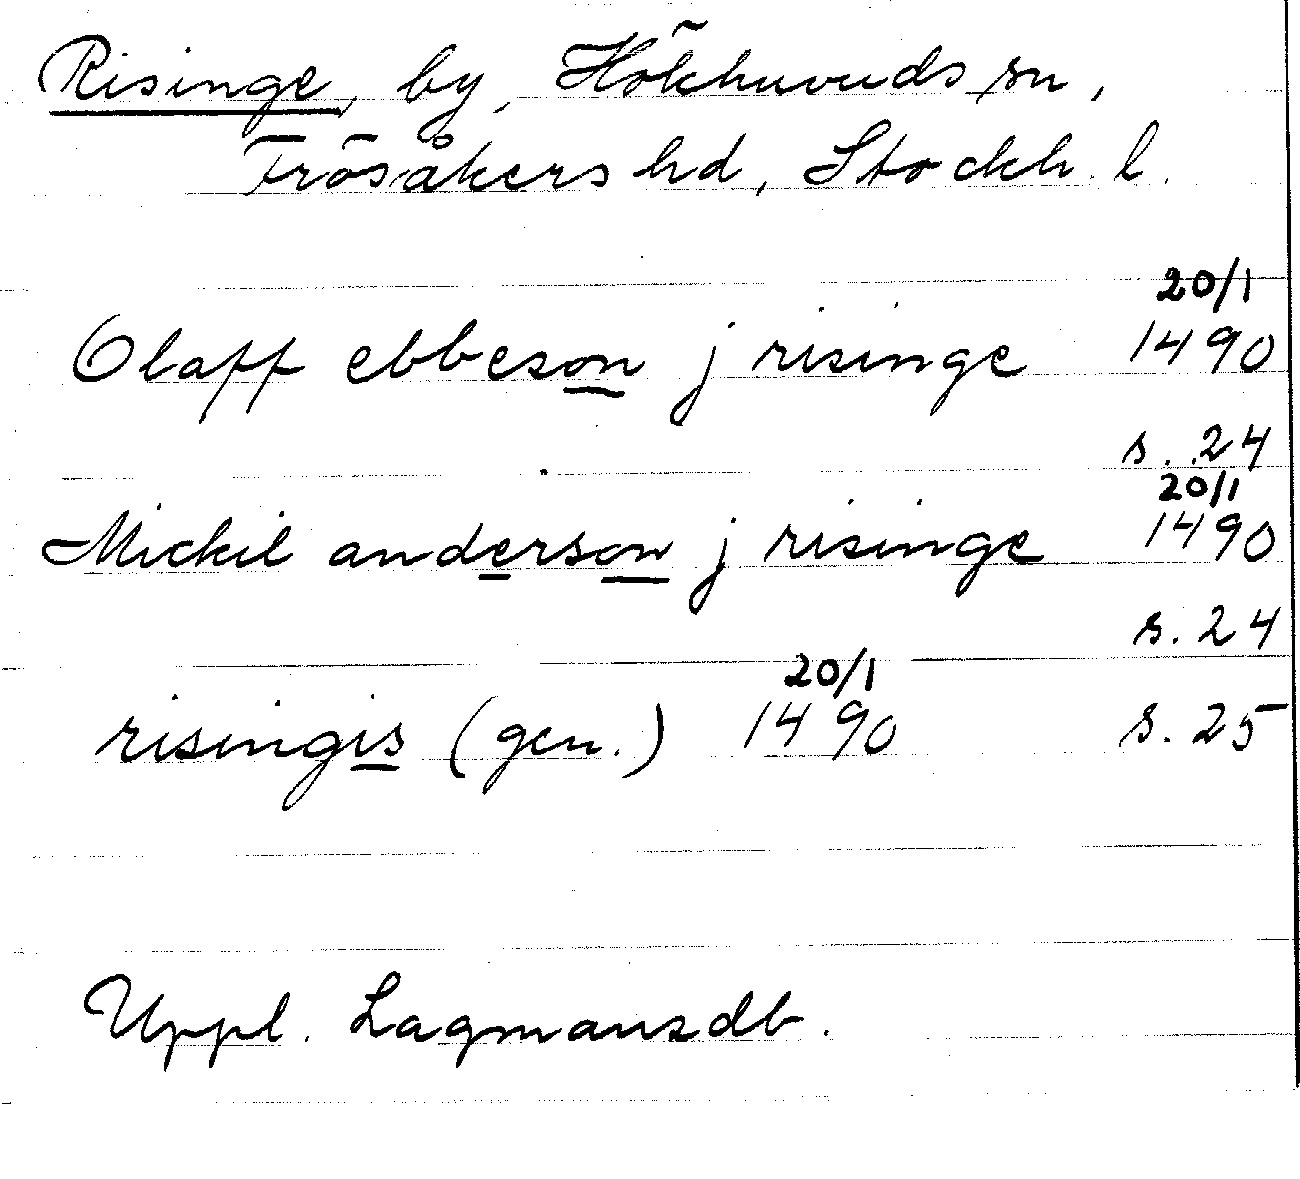 Risinge, by, Hökhuvuds sn,
Frösåkers hd, Stockh. l.
20/1
Olaff ebbeson j risinge 1490
s. 24
20/1
Mickil anderson j risinge 1490
s. 24
20/1
risingis (gen.) 1490 s. 25
Uppl. Lagmansdb.